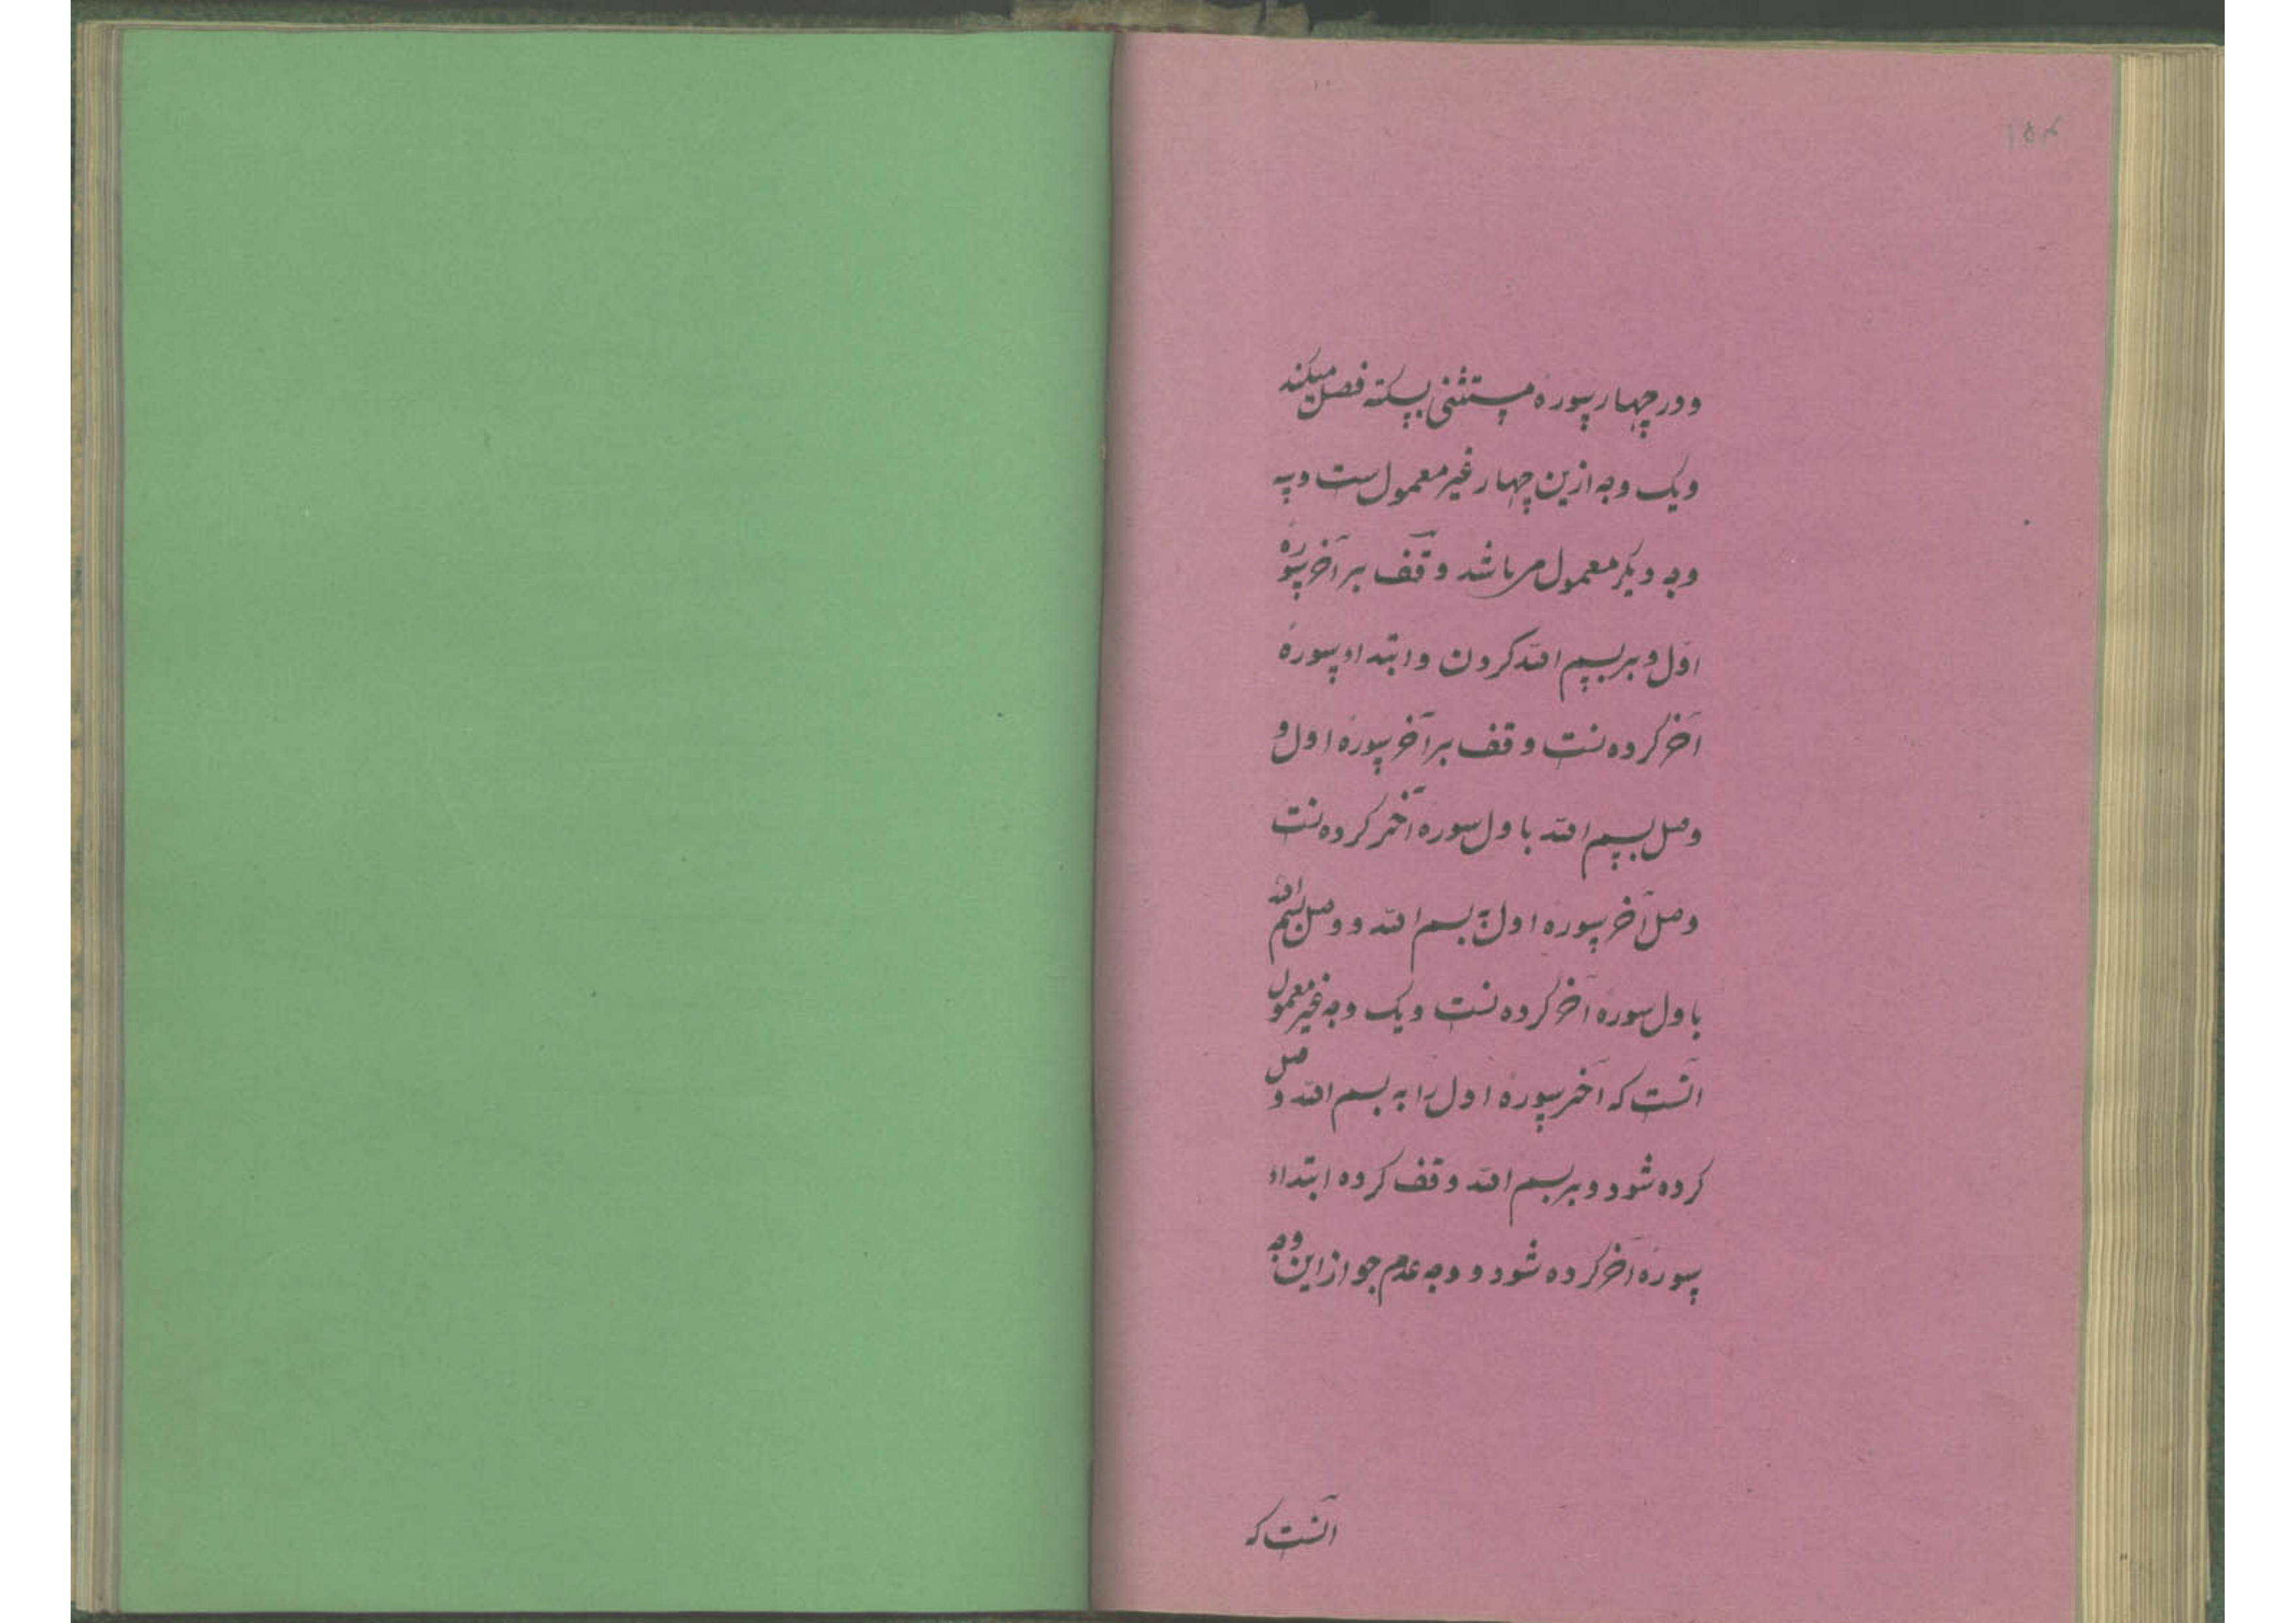 ۱۵۴
ودر چهار سوره مستثنی بسکته فصل میکند
ویک وجه ازین چهار غیر معمول ست وسه
وجه دیگر معمول می باشد وقف بر آخر سورهٔ
اول و بر بسم الله کردن و ابتداء سورهٔ
آخر کردنست وقف بر آخر سورهٔ اول و
وصل بسم الله باول سوره آخر کردنست
وصل آخر سوره اول به بسم الله و وصل بسم الله
باول سوره آخر کردنست ویک وجه غیر معمول
آنست که آخر سورهٔ اول را به بسم الله وصل
کرده شود و بر بسم الله وقف کرده ابتداء
سورهٔ آخر کرده شود و وجه عدم جواز این وجه
آنست که